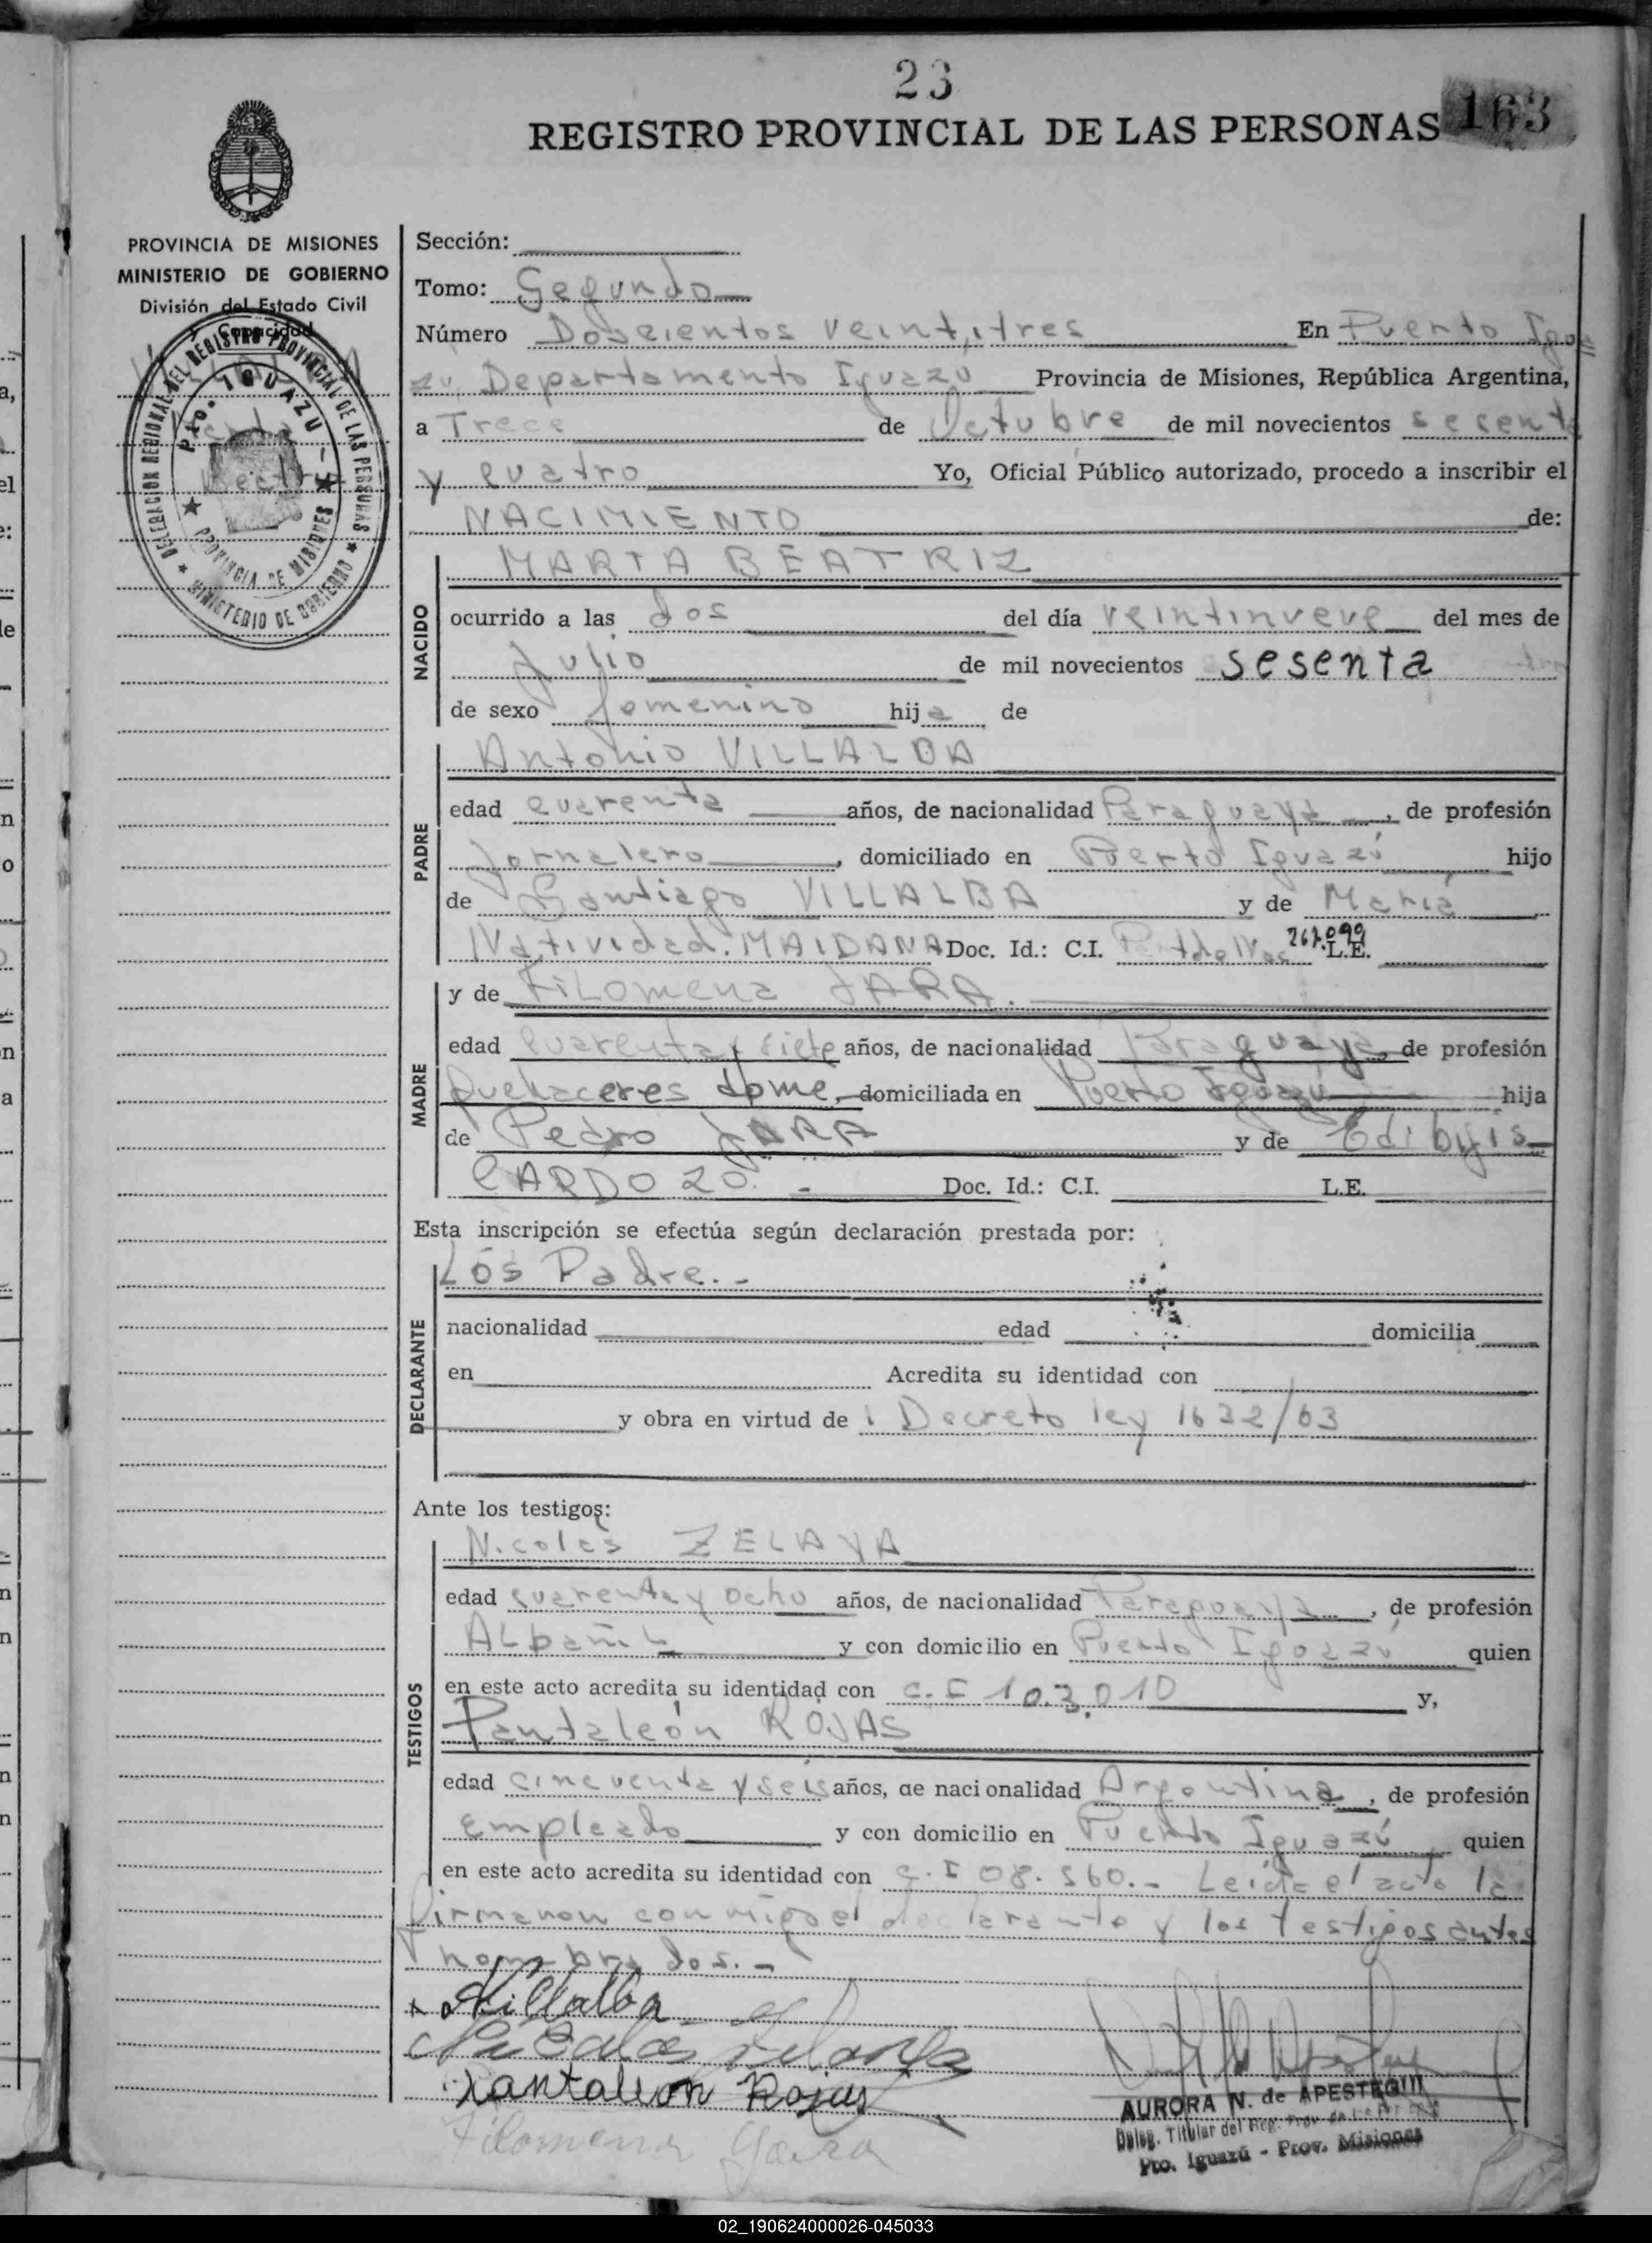 23
REGISTRO PROVINCIAL DE LAS PERSONAS 163
PROVINCIA DE MISIONES
MINISTERIO DE GOBIERNO
División del Estado Civil
y Capacidad
DELEGACION REGIONAL DEL REGISTRO PROVINCIAL DE LAS PERSONAS
Pto. IGUAZU
PROVINCIA DE MISIONES
MINISTERIO DE GOBIERNO
Sección:
Tomo: Segundo
Número Doscientos veintitres En Puerto Igua
zu, Departamento Iguazu Provincia de Misiones, República Argentina,
a Trece de Octubre de mil novecientos sesenta
y cuatro Yo, Oficial Público autorizado, procedo a inscribir el
NACIMIENTO de:
NACIDO
MARTA BEATRIZ
ocurrido a las dos del día veintinueve del mes de
Julio de mil novecientos sesenta
de sexo femenino hija de
PADRE
Antonio VILLALBA
edad cuarenta años, de nacionalidad Paraguaya, de profesión
Jornalero, domiciliado en Puerto Iguazú hijo
de Santiago VILLALBA y de María
Natividad. MAIDANA Doc. Id.: C.I. 267.099 L.E.
MADRE
y de Filomena JARA.
edad cuarenta y siete años, de nacionalidad Paraguaya, de profesión
Quehaceres dome, domiciliada en Puerto Iguazú hija
de Pedro JARA y de Edibyis
CARDOZO. - Doc. Id.: C.I. L.E.
Esta inscripción se efectúa según declaración prestada por:
DECLARANTE
Los Padre. -
nacionalidad edad domicilia
en Acredita su identidad con
y obra en virtud de Decreto ley 1632/63
Ante los testigos:
TESTIGOS
Nicolás ZELAYA
edad cuarenta y ocho años, de nacionalidad Paraguaya, de profesión
Albañil y con domicilio en Puerto Iguazú quien
en este acto acredita su identidad con C. I 103.010 y,
Pantaleón ROJAS
edad cincuenta y seis años, de nacionalidad Argentina, de profesión
Empleado y con domicilio en Puerto Iguazú quien
en este acto acredita su identidad con C. I 08.560. - Leída el acta la
firmaron conmigo el declarante y los testigos antes
nombrados. -
Villalba
Nicolas Zelaya
Pantaleon Rojas
Filomena Jara
AURORA N. de APESTEGUI
Deleg. Titular del Reg. Prov. de las Personas
Pto. Iguazú - Prov. Misiones
02_190624000026-045033